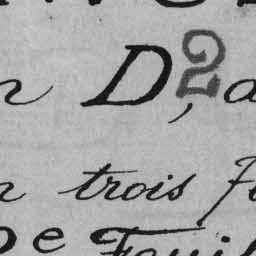 n D,2 a
n trois f
e Feuil